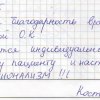 благодарность вра
ой О.К.
тся индивидуальн
у пациенту и наст
ионализм !!!
Кост